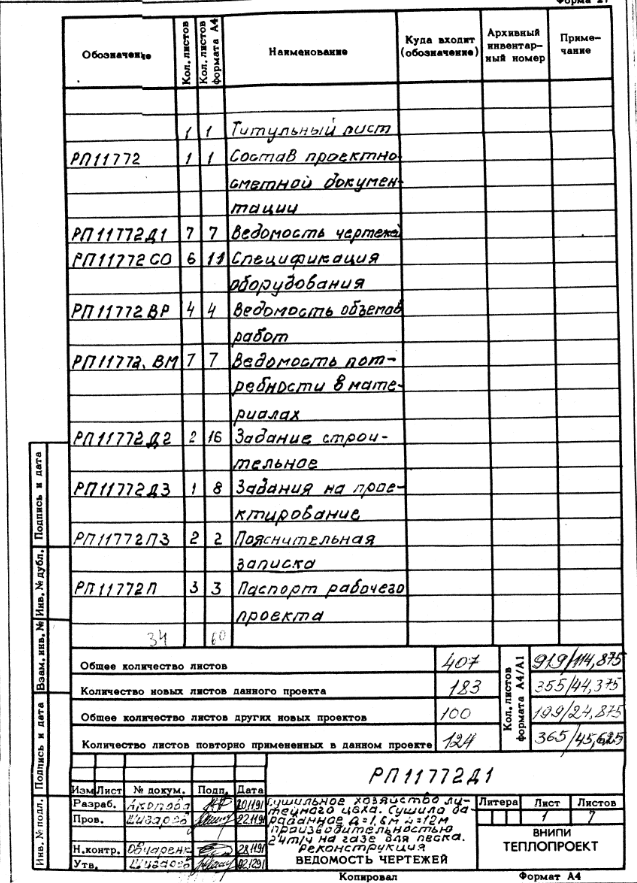 Форма 27
Обозначение
Кол. листов
Кол. листов формата А4
Наименование
Куда входит (обозначение)
Архивный инвентарный номер
Примечание
1 1 Титульный лист
РП11772 1 1 Состав проектно
сметной докумен-
тации
РП11772Д1 7 7 Ведомость чертежей
РП11772СО 6 11 Спецификация
оборудования
РП11772ВР 4 4 Ведомость объемов
работ
РП11772.ВМ 7 7 Ведомость пот-
ребности в мате-
риалах
РП11772Д2 2 16 Задание строи-
тельное
РП11772Д3 1 8 Задания на прое-
ктирование
РП11772ПЗ 2 2 Пояснительная
записка
РП11772П 3 3 Паспорт рабочего
проекта
34 60
Общее количество листов 407
Количество новых листов данного проекта 183
Общее количество листов других новых проектов 100
Количество листов повторно примененных в данном проекте 124
Кол. листов формата А4/А1
919/114,875
355/44,375
199/24,875
365/45,625
РП11772Д1
Изм Лист № докум. Подп. Дата
Разраб. Акопова 20.11.91
Пров. 22.11.91
Н.контр. Овчаренк 28.11.91
Утв. 02.12.91
Сушильное хозяйство ли-
тейного цеха. Сушило ба-
рабанное Д=1,6м L=12м
производительностью
24т/ч на газе для песка.
Реконструкция
ВЕДОМОСТЬ ЧЕРТЕЖЕЙ
Литера Лист Листов
1 7
ВНИПИ
ТЕПЛОПРОЕКТ
Копировал Формат А4
Подпись и дата
Инв. № дубл.
Взам. инв. №
Подпись и дата
Инв. № подл.